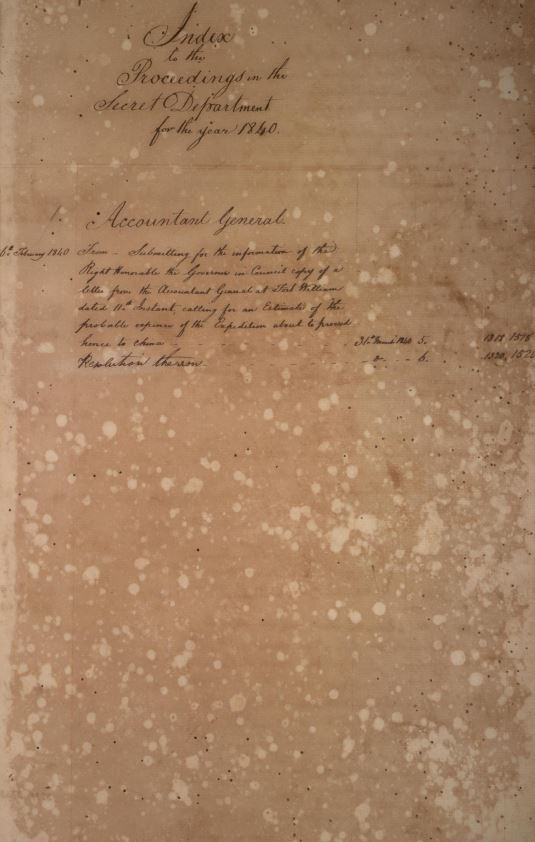 Index
to the
Proceedings in the
Secret Department
for the year 1840.
Accountant General.
February 1840 From - Submitting for the information of the
Right Honorable the Governor in Council copy of a
letter from the Accountant General at Fort William
dated 11th Instant, calling for an Estimate of the
probable expense of the Expedition about to proceed
hence to China - 31st March 1840 5.
Resolution thereon - do - 6.